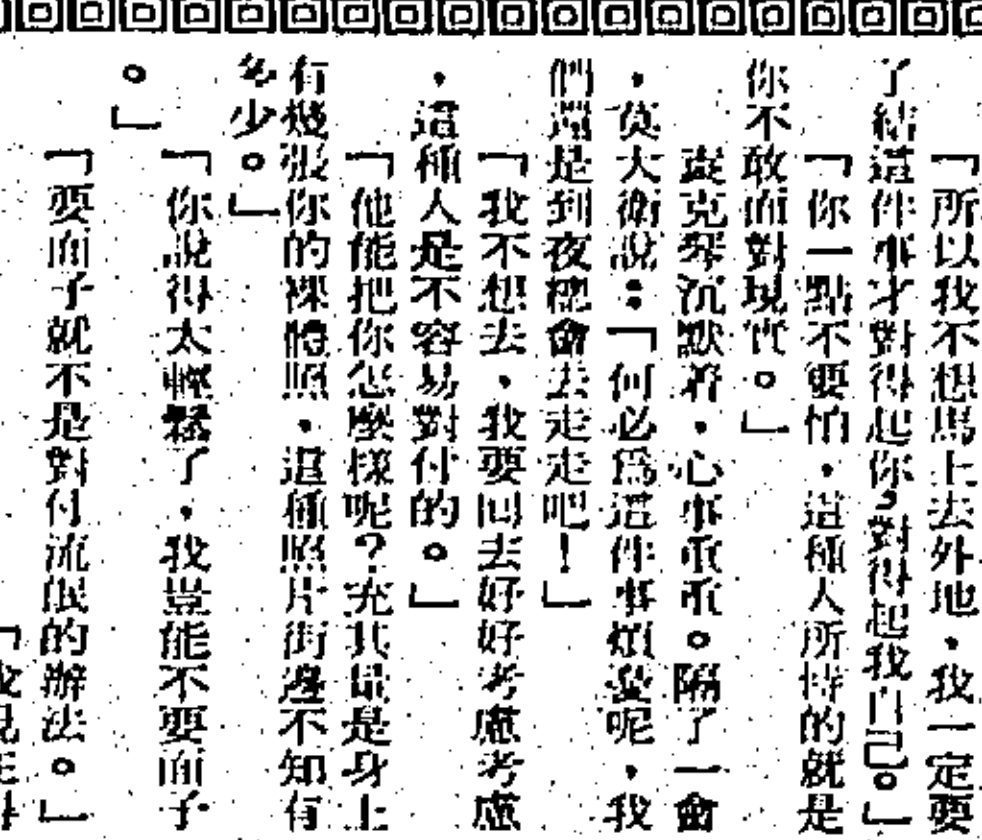 「所以我不想馬上去外地，我一定要
了結這件事才對得起你，對得起我自己。」
「你一點不要怕，這種人所恃的就是
你不敢面對現實。」
克琴沉默着，心事重重。隔了一會
，莫大衛說：「何必爲這件事煩憂呢，我
們還是到夜總會去走走吧！」
「我不想去，我要回去好好考慮考慮
，這種人是不容易對付的。」
「他能把你怎麼樣呢？充其量是身上
有幾張你的裸體照，這種照片街邊不知有
多少。」
「你說得太輕鬆了，我豈能不要面子
。」
「要面子就不是對付流氓的辦法。」